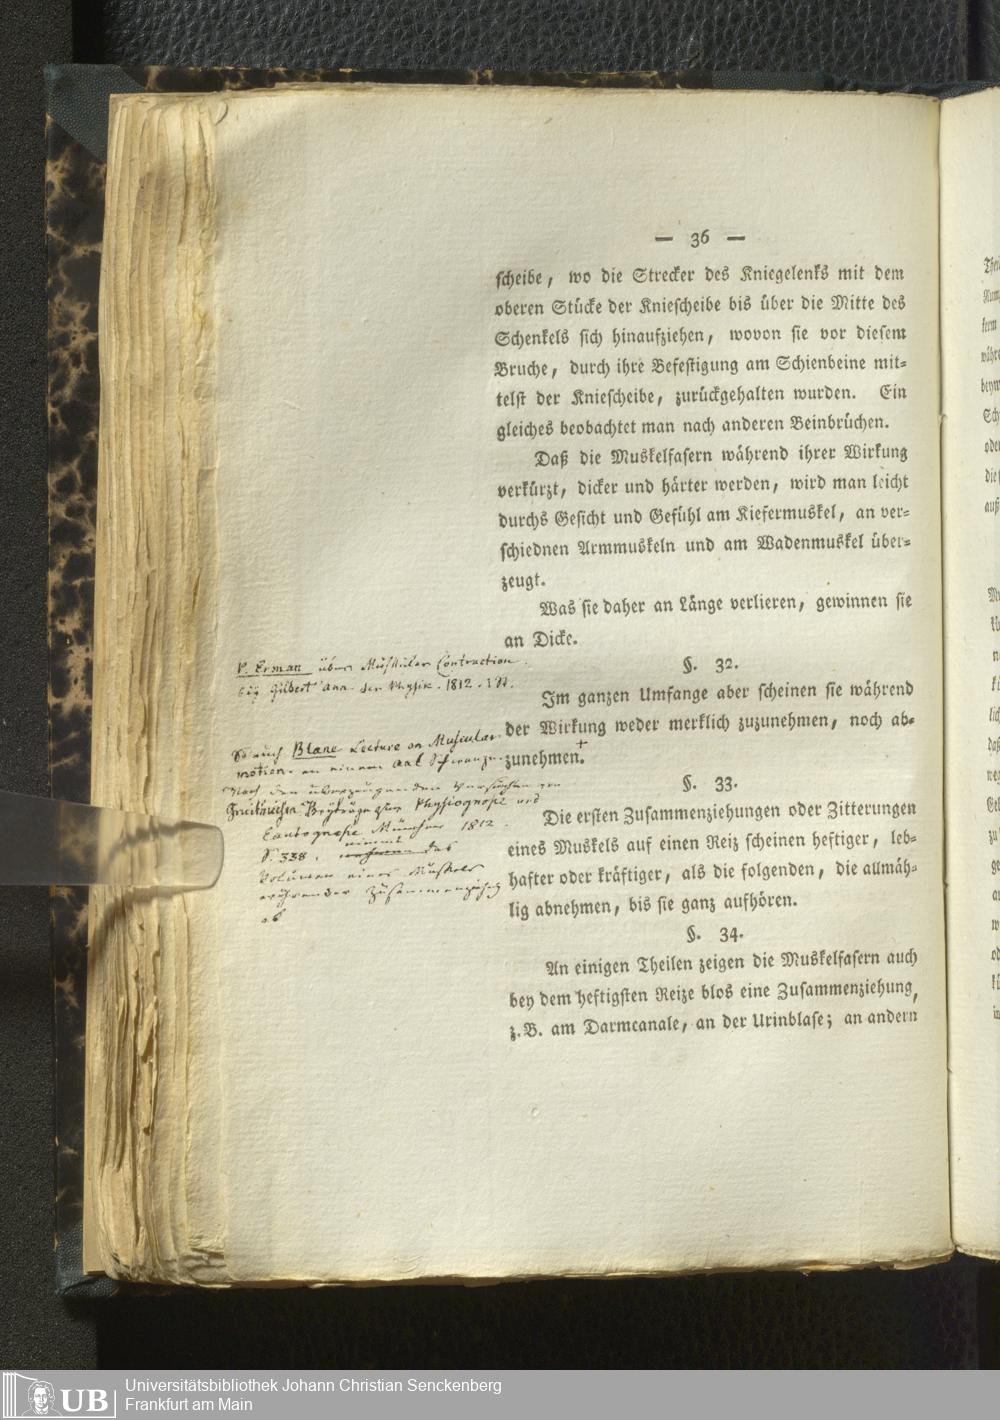 — 36 —
scheibe, wo die Strecker des Kniegelenks mit dem
oberen Stücke der Kniescheibe bis über die Mitte des
Schenkels sich hinaufziehen, wovon sie vor diesem
Bruche, durch ihre Befestigung am Schienbeine mit-
telst der Kniescheibe, zurückgehalten wurden. Ein
gleiches beobachtet man nach anderen Beinbrüchen.
Daß die Muskelfasern während ihrer Wirkung
verkürzt, dicker und härter werden, wird man leicht
durchs Gesicht und Gefühl am Kiefermuskel, an ver-
schiednen Armmuskeln und am Wadenmuskel über-
zeugt.
Was sie daher an Länge verlieren, gewinnen sie
an Dicke.
§. 32.
Im ganzen Umfange aber scheinen sie während
der Wirkung weder merklich zuzunehmen, noch ab-
zunehmen.+
§. 33.
Die ersten Zusammenziehungen oder Zitterungen
eines Muskels auf einen Reiz scheinen heftiger, leb-
hafter oder kräftiger, als die folgenden, die allmäh-
lig abnehmen, bis sie ganz aufhören.
§. 34.
An einigen Theilen zeigen die Muskelfasern auch
bey dem heftigsten Reize blos eine Zusammenziehung,
z. B. am Darmcanale, an der Urinblase; an andern
P. Erman über Muskular Contraction.
Gilbert Ann. der Physik. 1812.
So auch Blane Lecture on Muscular
motion. an einem Aal Schwanze.
Nach den überzeugenden Versuchen von
Beyträge zur Physiognosie und
Eautognosie München 1812.
S. 338. nimmt das
Volumen eines Muskels
während der Zusammenziehung
ab
Universitätsbibliothek Johann Christian Senckenberg
Frankfurt am Main
UB